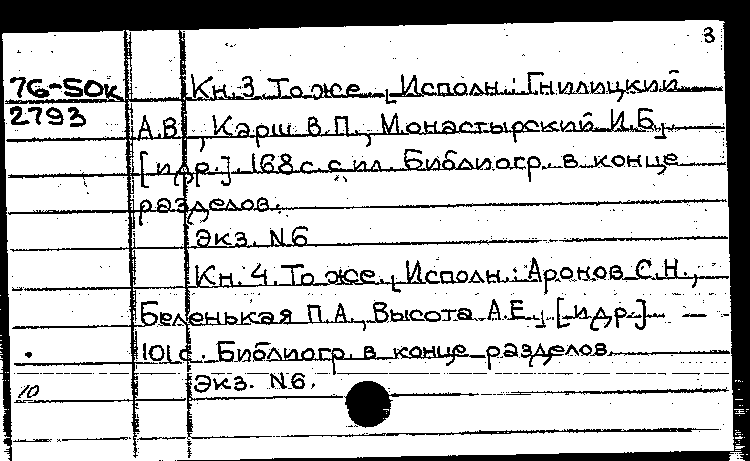 3
76-50к Кн. 3. То же. [Исполн.: Гнилицкий
2793 А.В., Карш В.П., Монастырский И.Б.,
[и др.]. 168 с. с ил. Библиогр. в конце
разделов.
Экз. N6
Кн. 4. То же. [Исполн.: Аронов С.Н.,
Беленькая П.А., Высота А.Е., [и др.]
101 с. Библиогр. в конце разделов.
10 Экз. N6.